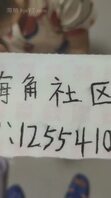 海角社区
:1255410